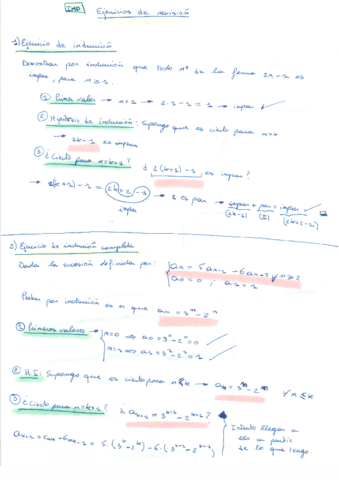 IMD Ejercicios de revisión
1) Ejercicio de inducción
Demostrar por inducción que todo nº de la forma 2n - 1 es
impar, para n ≥ 1.
① Primer valor → n=1 → 2·1-1 = 1 → impar ✓
② Hipótesis de inducción: Supongo que es cierto para n=k
→ 2k-1 es impar
③ ¿Cierto para n=k+1? ¿ 2(k+1)-1 es impar?
→ 2(k+1)-1 = 2k+2-1 → 2 es par → impar + par = impar ✓
impar (2k-1) (2) (2k+2-1)
2) Ejercicio de inducción completa
Dada la sucesión definida por:
a₀=0, a₁=1
Probar por inducción en n que aₙ = 3ⁿ - 2ⁿ
① Primeros valores → n=0 → a₀=3⁰-2⁰=0 ✓
n=1 → a₁=3¹-2¹=1 ✓
② H.I.: Supongo que es cierto para n≤k → aₙ=3ⁿ-2ⁿ ∀n≤k
③ ¿Cierto para n=k+1? ¿ aₖ₊₁=3ᵏ⁺¹-2ᵏ⁺¹?
Intento llegar a
eso a partir
de lo que tengo.
aₖ₊₁=5aₖ-6aₖ₋₁ = 5·(3ᵏ-2ᵏ)-6·(3ᵏ⁻¹-2ᵏ⁻¹)